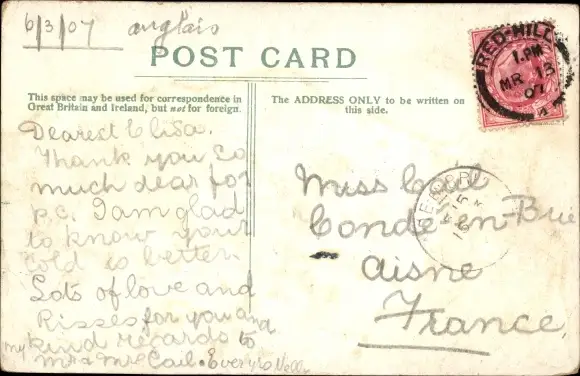 6/3/07 anglais
POST CARD
This space may be used for correspondence in
Great Britain and Ireland, but not for foreign.
The ADDRESS ONLY to be written on
this side.
RED-HILL
1.PM
MR 15
07
Dearest Elisa.
Thank you so
much dear for
p.c. I am glad
to know your
cold is better.
Lots of love and
Kisses for you and
my kind regards to
Mrs Mr Cail. Every
Miss Cail
Condé-en-Brie
Aisne
France